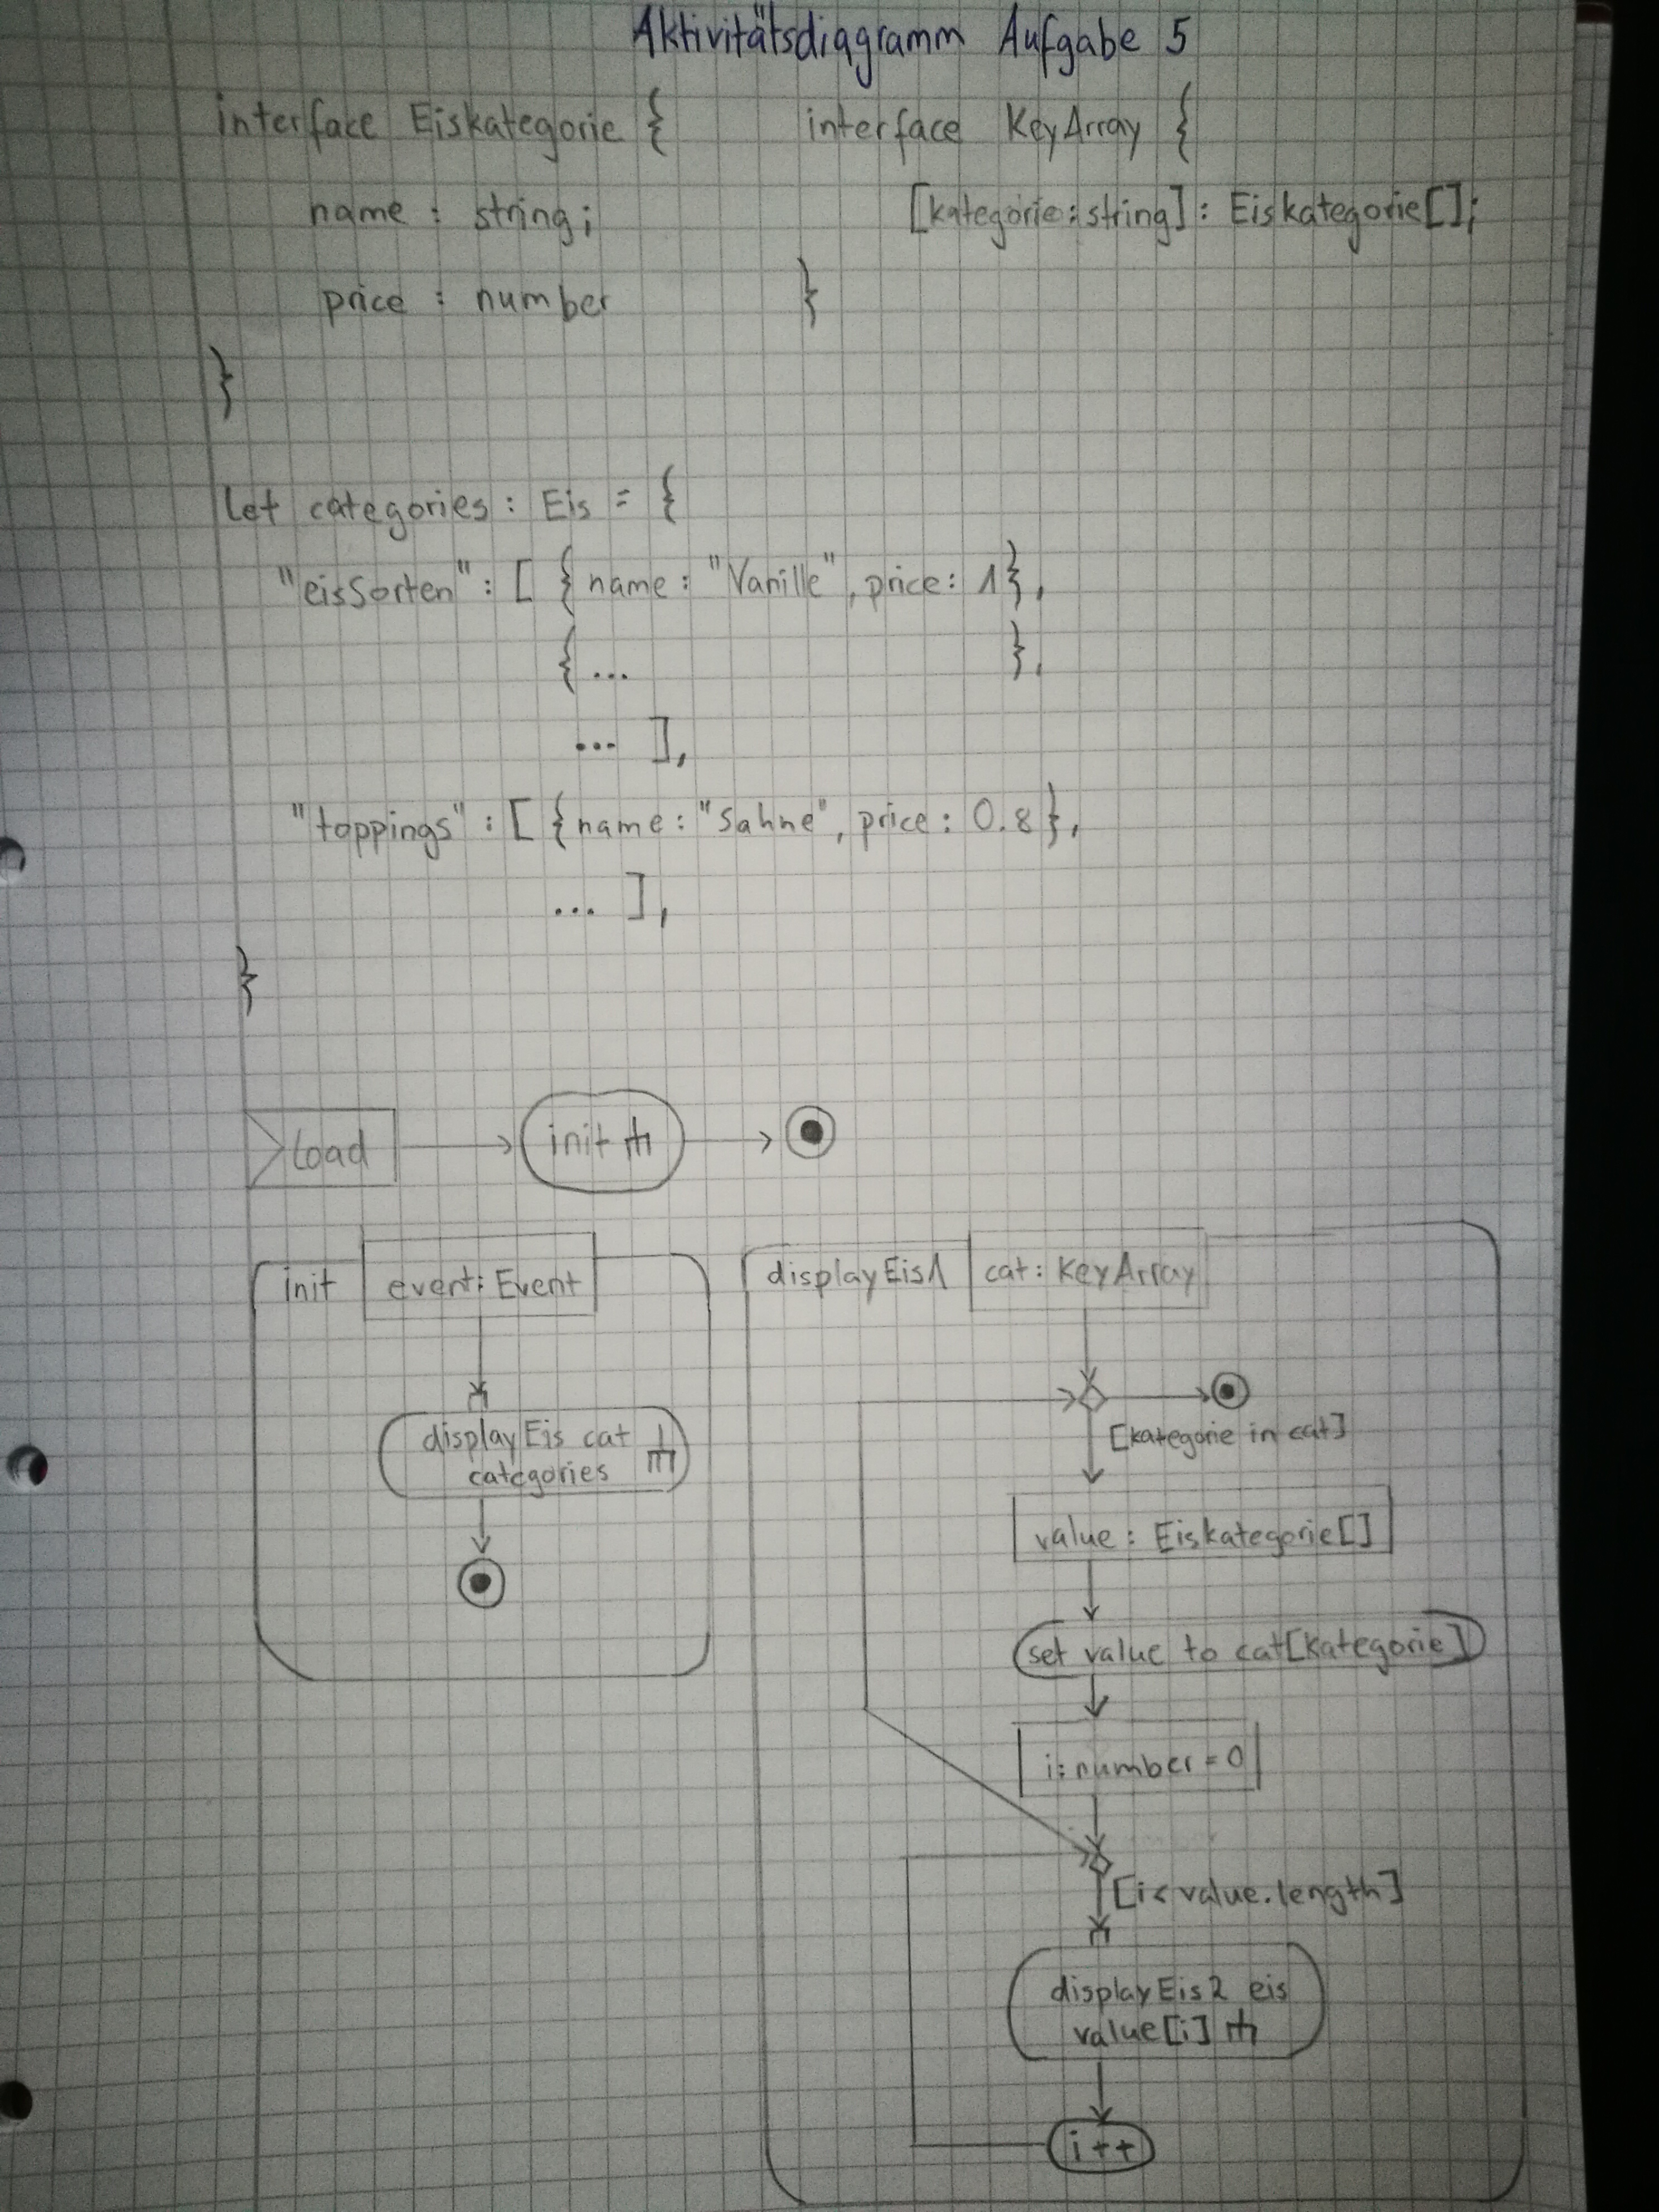 Aktivitätsdiagramm Aufgabe 5
interface Eiskategorie {
name : string;
price : number
}
interface KeyArray {
[kategorie:string] : Eiskategorie[];
}
let categories : Eis = {
"eisSorten" : [ { name : "Vanille", price : 1},
{ ... },
... ],
"toppings" : [ {name : "Sahne", price : 0.8},
... ],
}
load
init
init
event: Event
displayEis cat
categories
displayEis1
cat : KeyArray
[kategorie in cat]
value : Eiskategorie[]
set value to cat[kategorie]
i : number = 0
[i < value.length]
displayEis2 eis
value[i]
i++